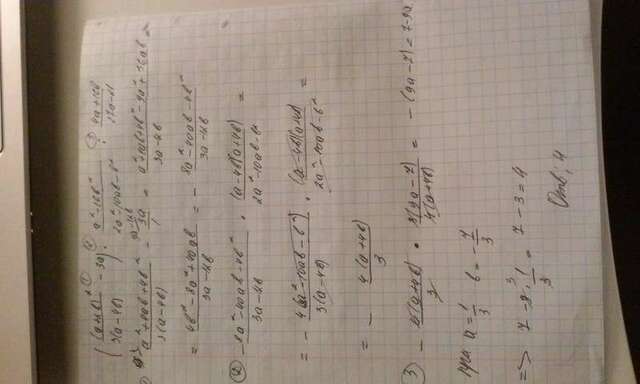 ① ② ③
((a+2b)²/3(a-4b) - 3a) · a²-16b²/2a²-10ab-b² : 4a+16b/27a-21
① a²+4ab+4b²/3(a-4b) - 3a/1 = a²+4ab+4b²-9a²+36ab/3a-12b =
= 4b²-8a²+40ab/3a-12b = - 8a²-40ab-4b²/3a-12b
② -8a²-40ab-4b²/3a-12b · (a-4b)(a+4b)/2a²-10ab-b² =
= - 4(2a²-10ab-b²)/3(a-4b) · (a-4b)(a+4b)/2a²-10ab-b² =
= - 4(a+4b)/3
③ - 4(a+4b)/3 · 3(9a-7)/4(a+4b) = -(9a-7) = 7-9a
a = 1/3 b = -7/3
=> 7 - 9 · 1/3 = 7 - 3 = 4
Отв: 4